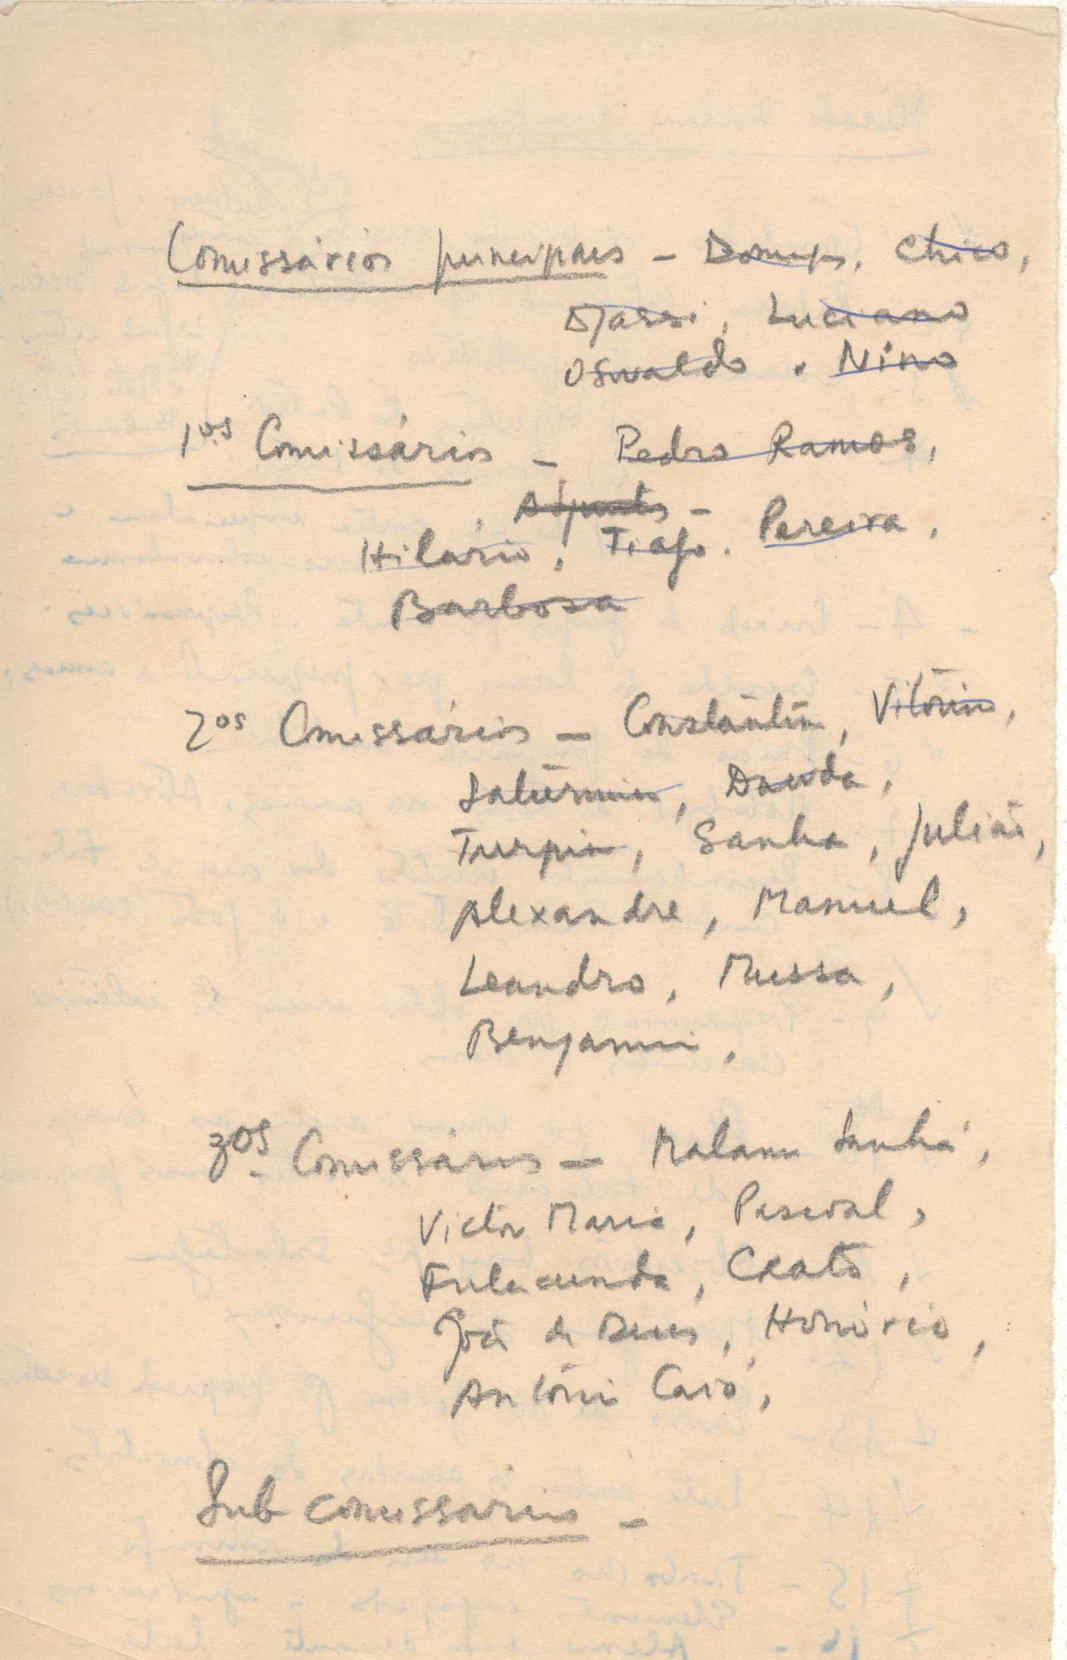 Comissários principais - Domingos, Chico,
Djassi, Luciano
Osvaldo. Nino
1os Comissários - Pedro Ramos,
Adjunto -
Hilário, Tiago. Pereira,
Barbosa
2os Comissários - Constantin, Vitórino,
Saturnino, Dauda,
Turpin, Sanha, Julião,
Alexandre, Manuel,
Leandro, Mussa,
Benjamin,
3os Comissários - Malam Sanhá,
Victor Maria, Pascoal,
Fulacunda, Crato,
João de Deus, Honório,
António Caió,
Sub comissários -